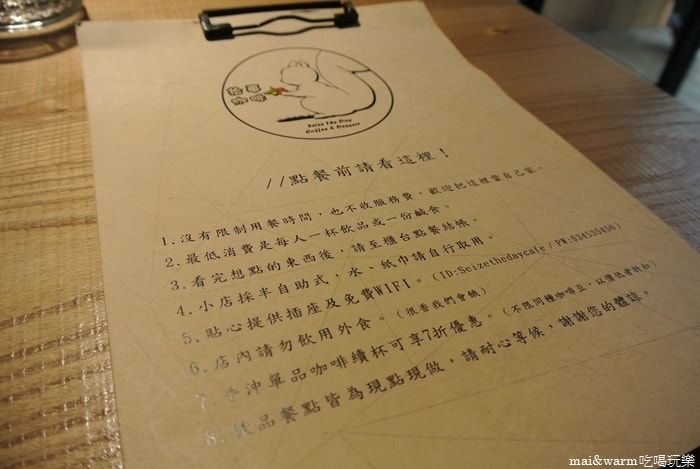 拾葉
咖啡
Seize The Day
Coffee & Dessert
//點餐前請看這裡！
1.沒有限制用餐時間，也不收服務費，歡迎把這裡當自己家。
2.最低消費是每人一杯飲品或一份鹹食。
3.看完想點的東西後，請至櫃台點餐結帳。
4.小店採半自助式，水、紙巾請自行取用。
5.貼心提供插座及免費WIFI。（ID:Seizethedaycafe / PW:034535456）
6.店內請勿飲用外食。（很香我們會餓）
7.手沖單品咖啡續杯可享7折優惠。（不限同種咖啡豆，以價低者折扣）
8.飲品餐點皆為現點現做，請耐心等候，謝謝您的體諒。
mai&warm吃喝玩樂